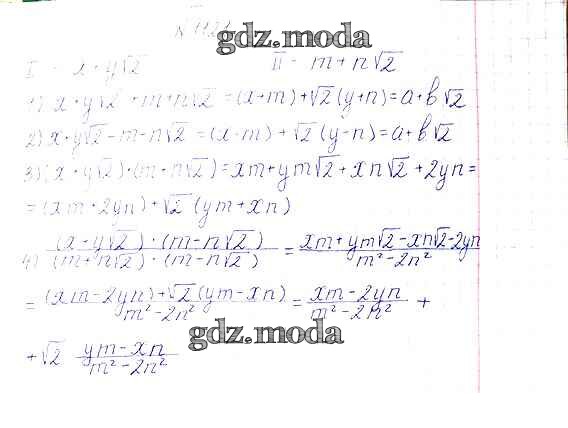 №1121
gdz.moda
I - x+y√2 II - m+n√2
1) x+y√2+m+n√2=(x+m)+√2(y+n)=a+b√2
2) x+y√2-m-n√2=(x-m)+√2(y-n)=a+b√2
3) (x+y√2)·(m+n√2)=xm+ym√2+xn√2+2yn=
=(xm+2yn)+√2(ym+xn)
4) (x+y√2)·(m-n√2)/(m+n√2)·(m-n√2) = xm+ym√2-xn√2-2yn/m²-2n²
= (xm-2yn)+√2(ym-xn)/m²-2n² = xm-2yn/m²-2n² +
gdz.moda
+√2 ym-xn/m²-2n²